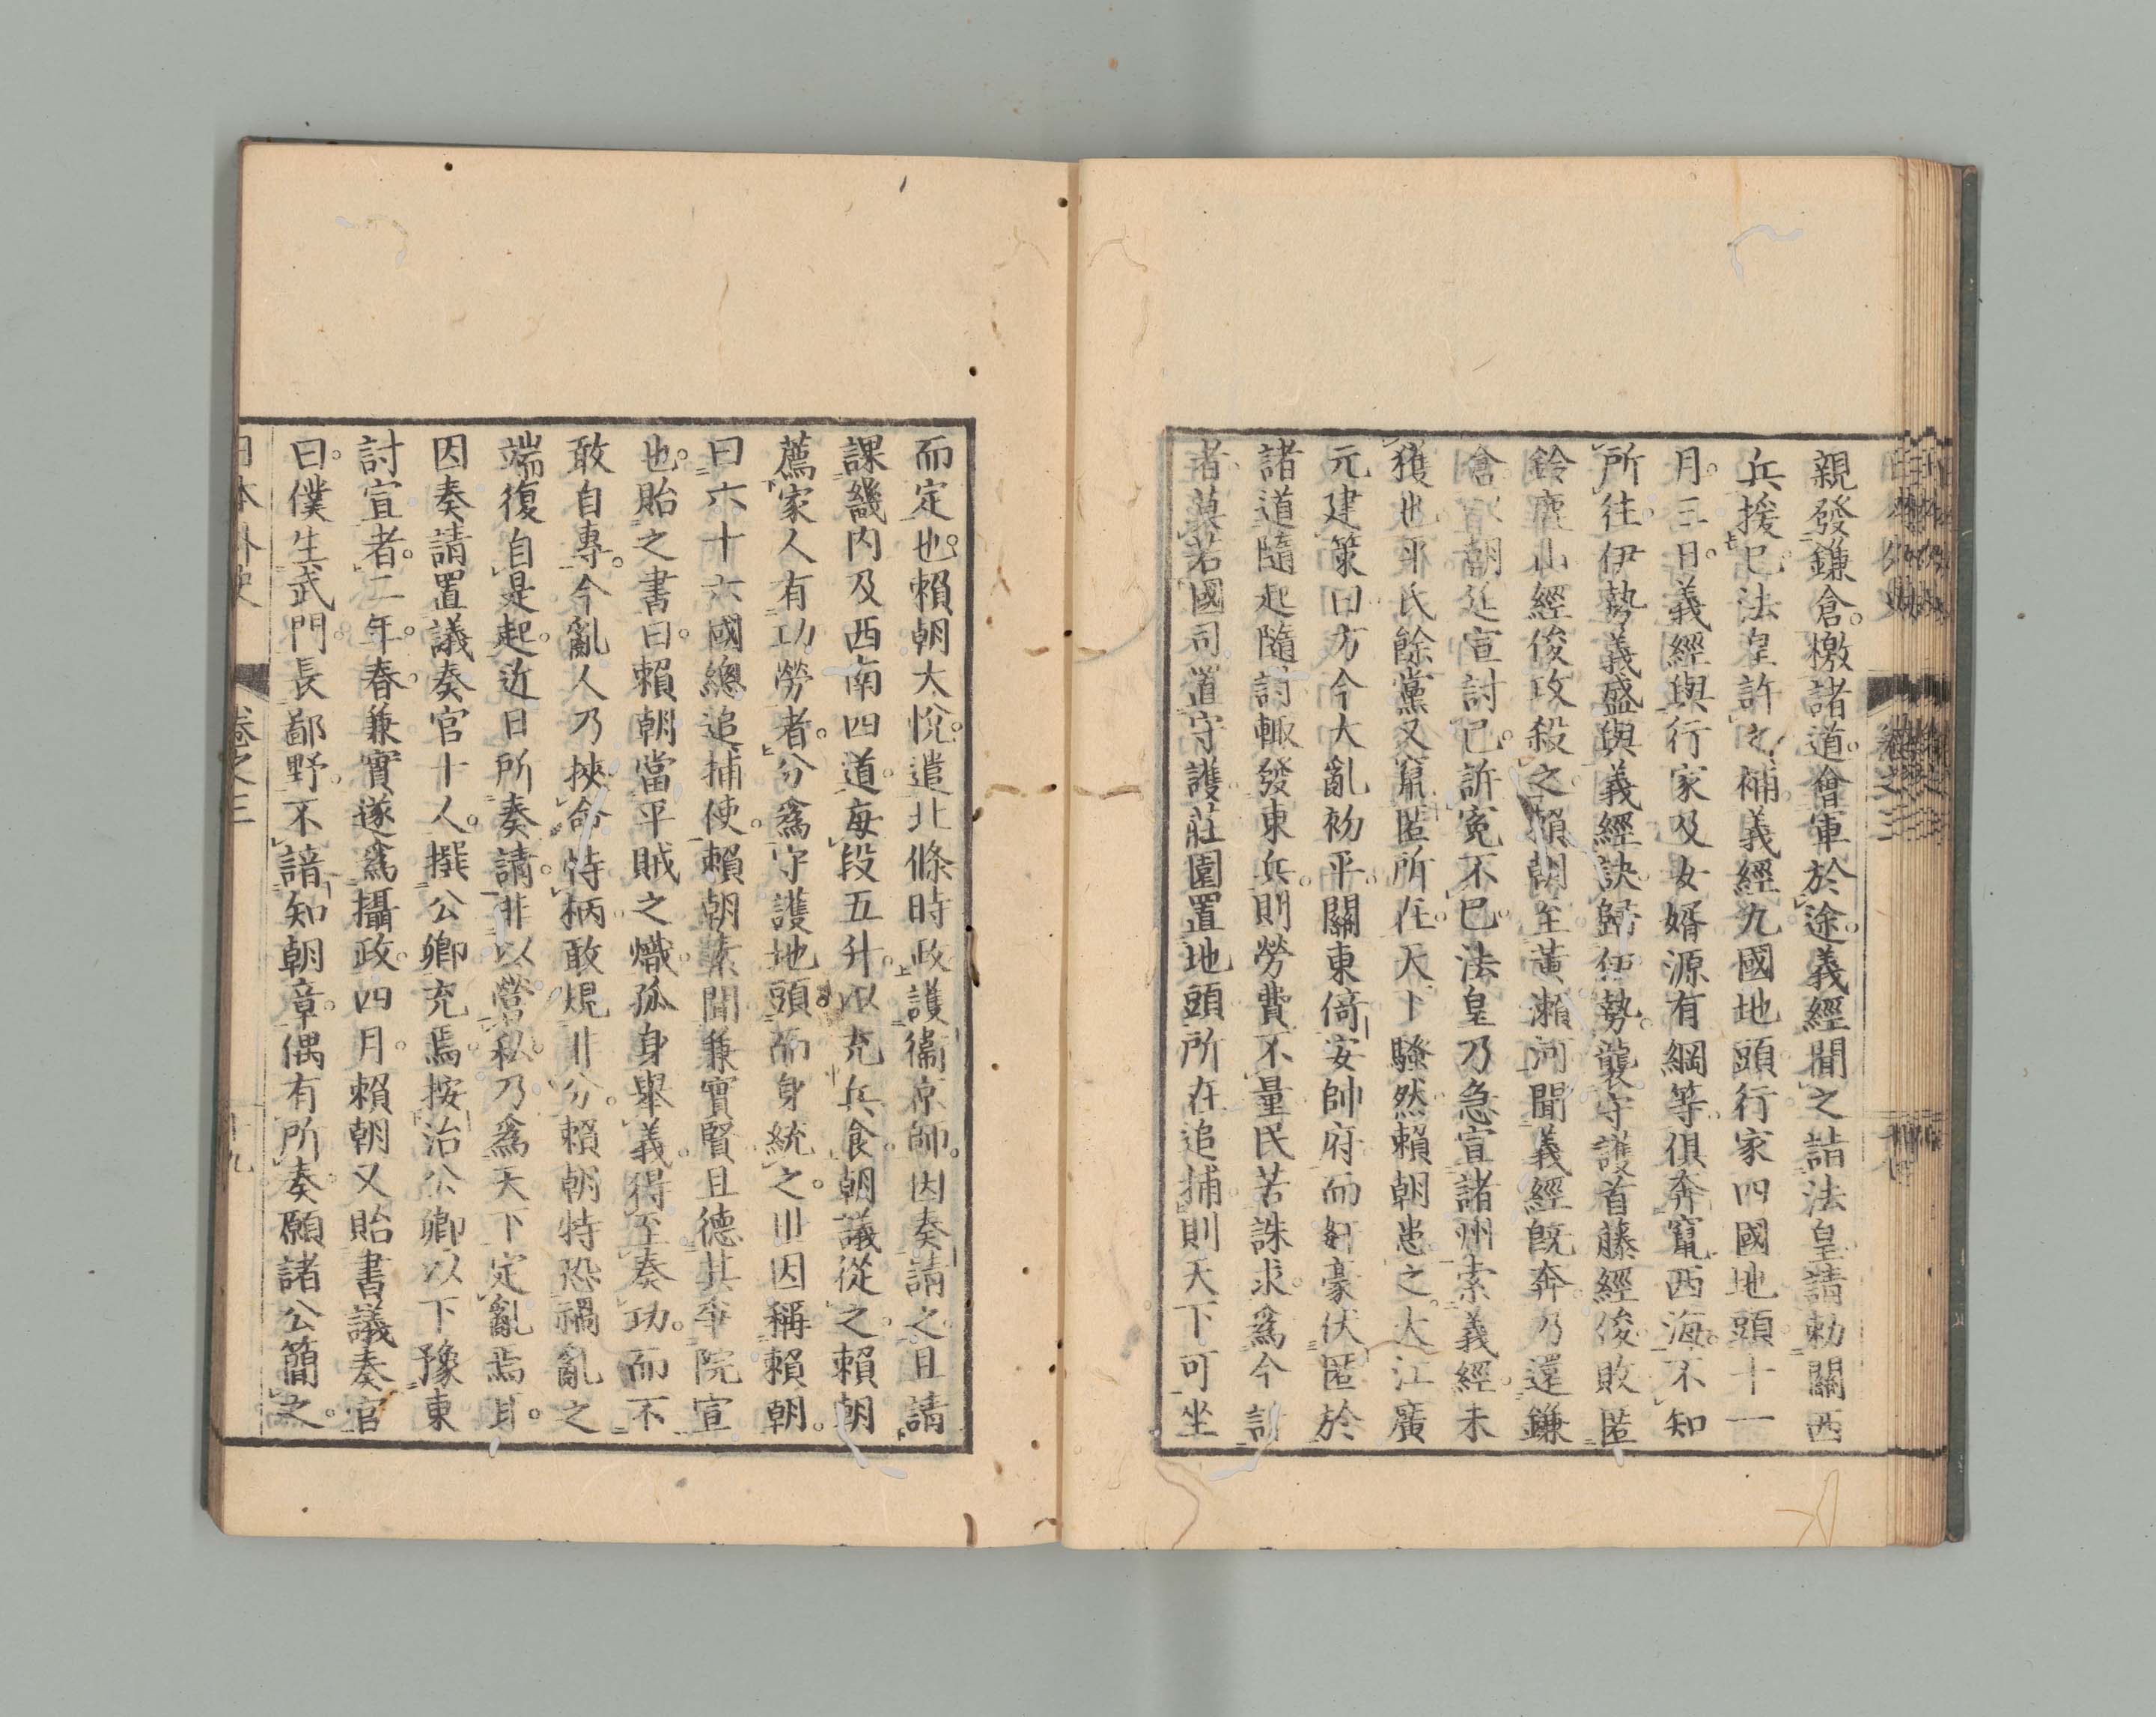 親發鎌倉。檄諸道。會軍於途。義經聞之詣法皇請勅關西
兵援已。法皇許之補義經九國地頭行家四國地頭十一
月。三日。義經與行家及女婿源有綱等俱奔竄西海。不知
所往。伊勢義盛與義經訣歸伊勢。襲守護首藤經俊。敗匿
鈴鹿山經俊攻殺之。賴朝至黃瀨河聞義經既奔。乃還鎌
倉。以朝廷宣討已。訴寃不已。法皇乃急宣諸州索義經。未
獲也平氏餘黨又竄匿所在。天下騷然。賴朝患之。大江廣
元建策曰方今大亂初平。關東倚安帥府而奸豪伏匿於
諸道隨起隨討輙發東兵。則勞費不量民苦誅求。爲今計
者。莫若國司置守護莊園置地頭所在追捕。則天下可坐
而定也。賴朝大悅。遣北條時政護衞京師。因奏請之。且請
課畿內及西南四道。每段五升。以充兵食。朝議從之。賴朝
薦家人有功勞者。分爲守護地頭。而身統之。川因稱賴朝。
曰六十六國總追捕使。賴朝素聞兼實賢且德其爭院宣
也。貽之書曰。賴朝當平賊之熾。孤身擧義。得至奏功。而不
敢自專。今亂人乃挾命恃柄敢覬非分。賴朝特恐禍亂之
端復自是起。近日所奏請。非以營私。乃爲天下定亂焉耳。
因奏請置議奏官十人。撰公卿充焉。按治公卿以下豫東
討宣者。二年。春。兼實遂爲攝政。四月。賴朝又貽書議奏官
曰。僕生武門。長鄙野。不諳知朝章。偶有所奏。願諸公簡之。
日本外史 卷之三 十九